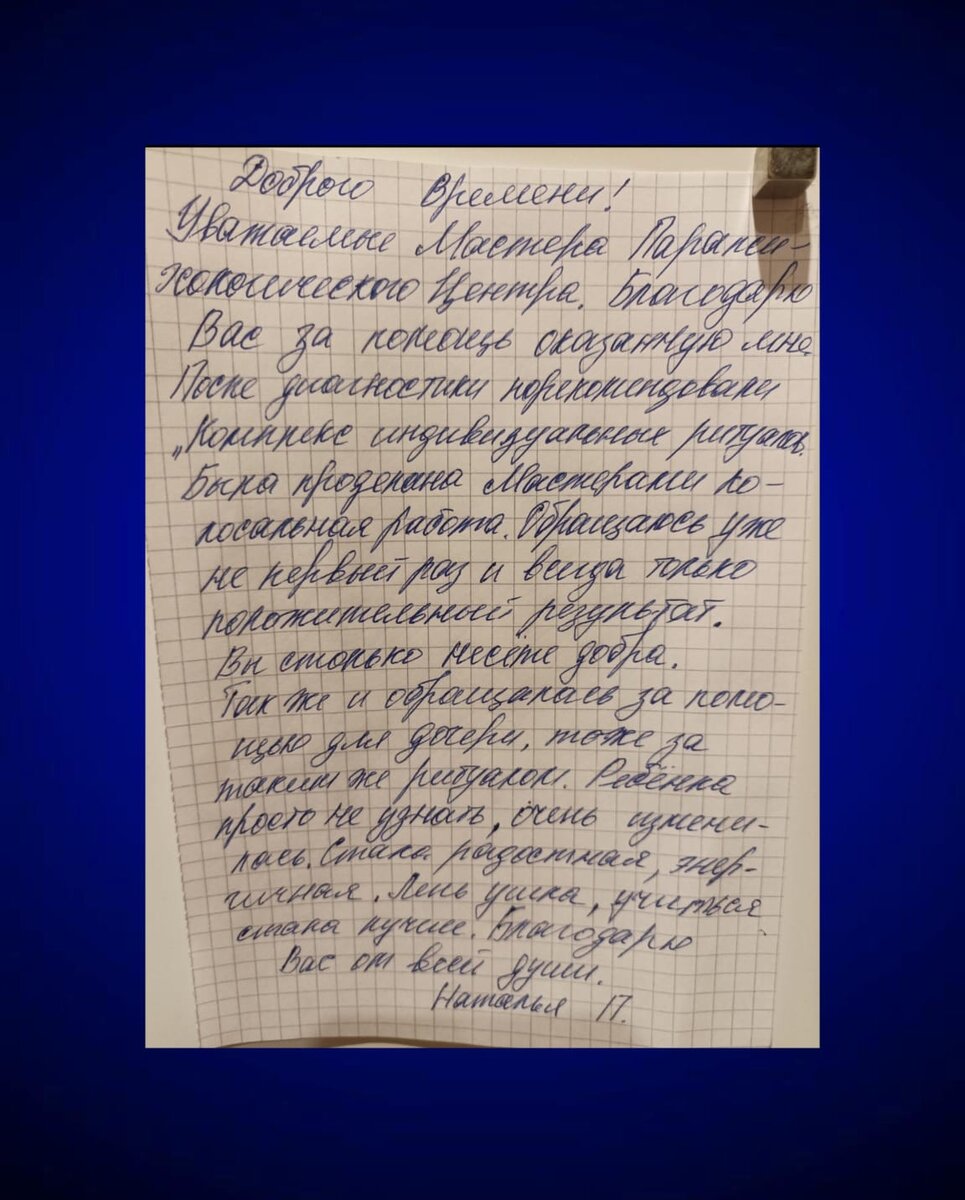 Доброго времени!
Уважаемые Мастера Парапси-
хологического Центра. Благодарю
Вас за помощь оказанную мне.
После диагностики порекомендовали
„Комплекс индивидуальных ритуалов.
Была проделана Мастерами ко-
лосальная работа. Обращаюсь уже
не первый раз и всегда только
положительный результат.
Вы столько несёте добра.
Так же и обращалась за помо-
щью для дочери, тоже за
таким же ритуалом. Ребёнка
просто не узнать, очень измени-
лась. Стала радостная, энер-
гичная. Лень ушла, учиться
стала лучше. Благодарю
Вас от всей души.
Наталья П.